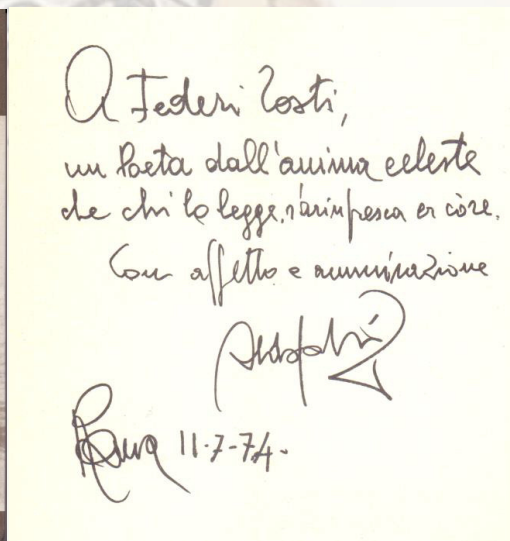 A Federi Tosti,
un Poeta dall'anima celeste
che chi lo legge, s'arinfresca er còre.
Con affetto e ammirazione
Roma 11-7-74.